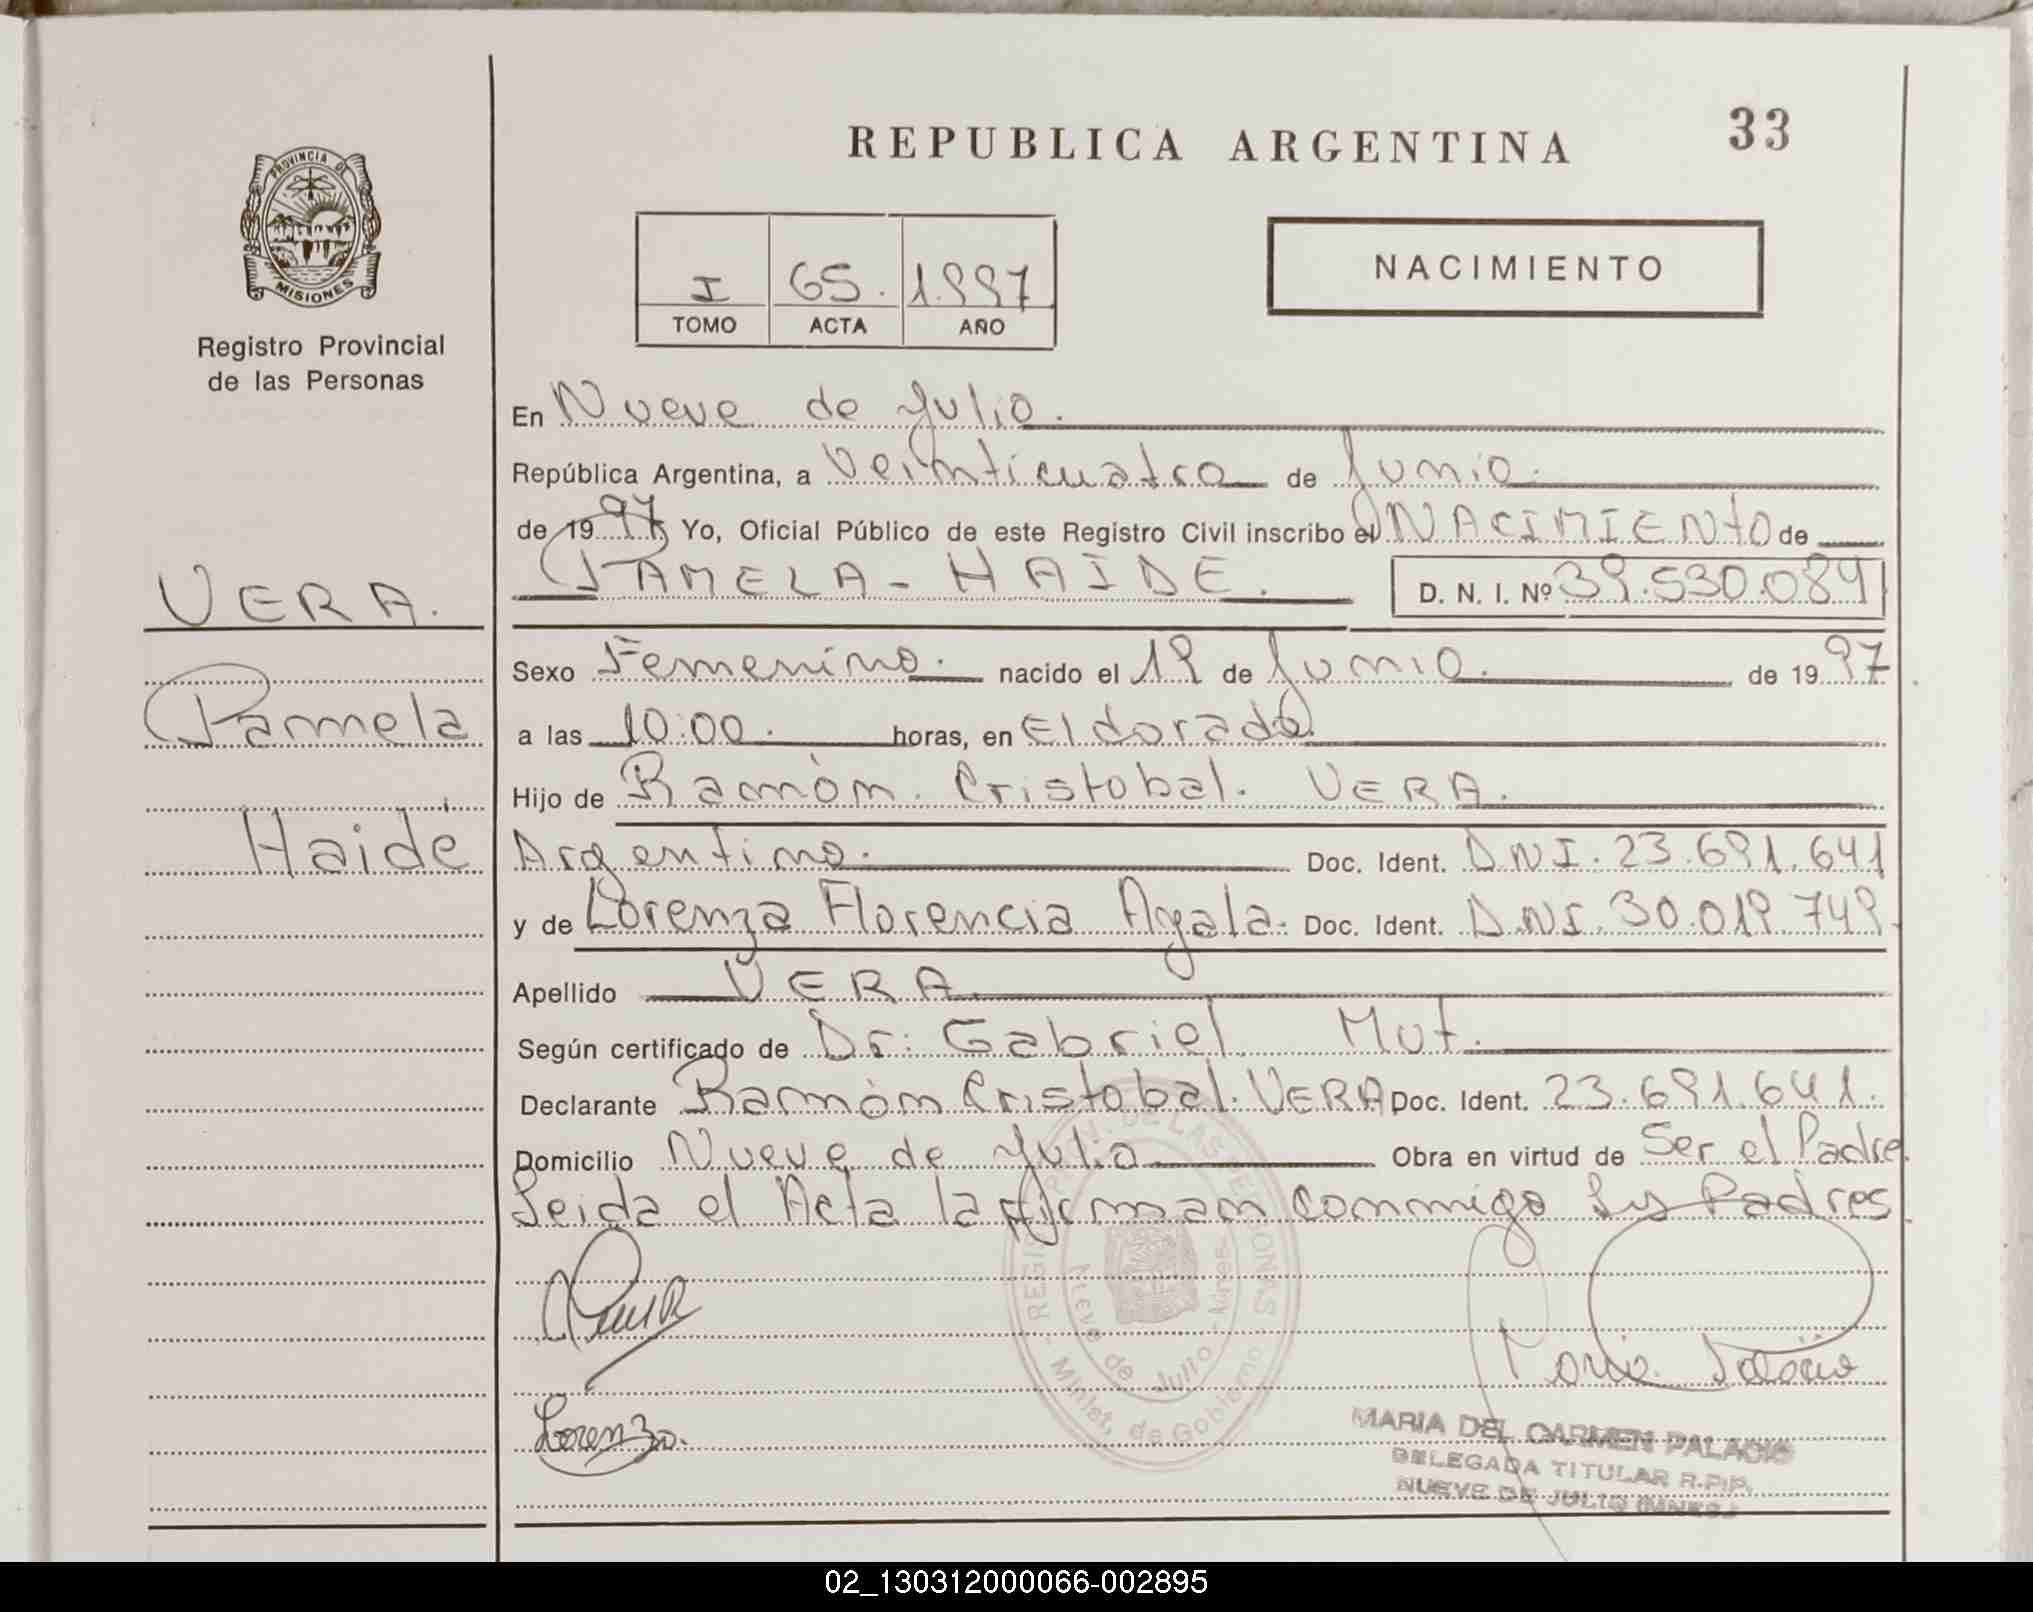 REPUBLICA ARGENTINA
33
PROVINCIA DE
MISIONES
Registro Provincial
de las Personas
I 65. 1.997
TOMO ACTA AÑO
NACIMIENTO
En Nueve de Julio.
República Argentina, a Veinticuatro de Junio.
de 1997 Yo, Oficial Público de este Registro Civil inscribo el NACIMIENTO de
PAMELA - HAIDE. D. N. I. Nº 39.530.089
VERA.
Pamela
Haidé
Sexo Femenino. nacido el 19 de Junio. de 1997
a las 10:00. horas, en Eldorado
Hijo de Ramón. Cristobal. VERA.
Argentino. Doc. Ident. DNI. 23.691.641
y de Lorenza Florencia Ayala. Doc. Ident. D.N.I. 30.019.749.
Apellido VERA.
Según certificado de Dr: Gabriel Mut.
Declarante Ramón Cristobal. VERA Doc. Ident. 23.691.641.
Domicilio Nueve de Julio Obra en virtud de Ser el Padre
Leida el Acta la firman conmigo Sus Padres.
REGIS PROV. DE LAS PERSONAS
Nueve de Julio - Mnes.
Minist. de Gobierno
Lorenza.
MARIA DEL CARMEN PALACIO
DELEGADA TITULAR R.P.P.
NUEVE DE JULIO (MNES.)
02_130312000066-002895